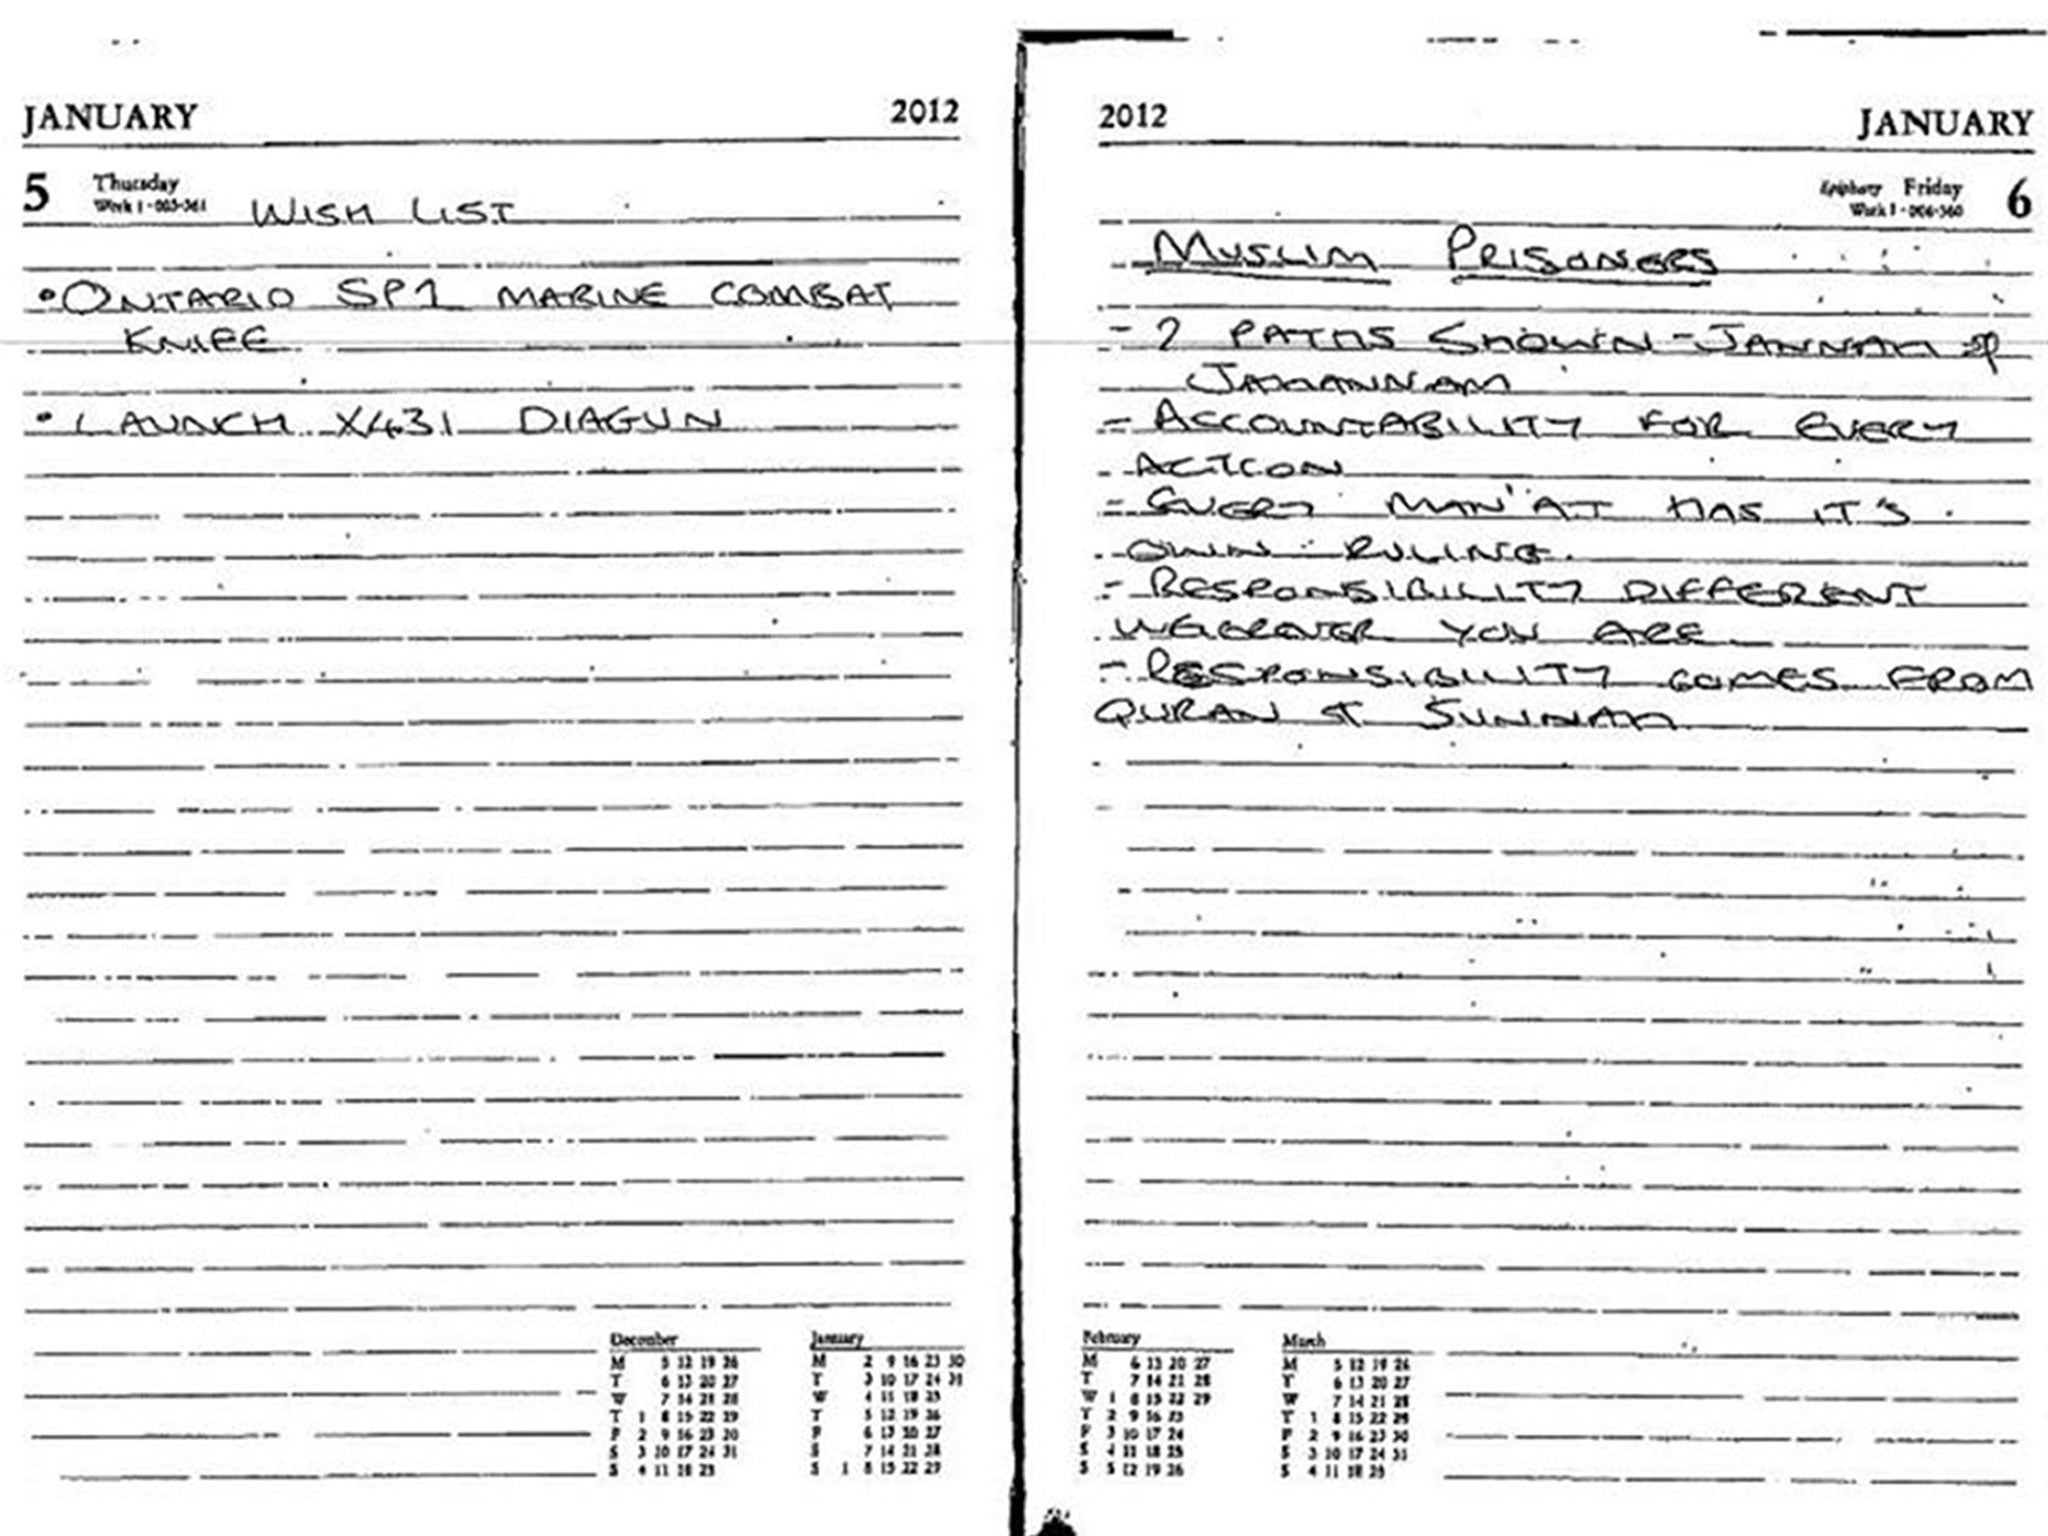 JANUARY 2012
5 Thursday
Week 1 · 005-361 WISH LIST
• ONTARIO SP1 MARINE COMBAT
KNIFE
• LAUNCH X431 DIAGUN
December
M 5 12 19 26
T 6 13 20 27
W 7 14 21 28
T 1 8 15 22 29
F 2 9 16 23 30
S 3 10 17 24 31
S 4 11 18 25
January
M 2 9 16 23 30
T 3 10 17 24 31
W 4 11 18 25
T 5 12 19 26
F 6 13 20 27
S 7 14 21 28
S 1 8 15 22 29
2012 JANUARY
Epiphany Friday 6
Week 1 · 006-360
MUSLIM PRISONERS
- 2 PATHS SHOWN - JANNAH &
JAHANNAM
- ACCOUNTABILITY FOR EVERY
ACTION
- EVERY MAN'AT HAS IT'S
OWN RULING.
- RESPONSIBILITY DIFFERENT
YOU ARE
- RESPONSIBILITY COMES FROM
QURAN & SUNNAH
February
M 6 13 20 27
T 7 14 21 28
W 1 8 15 22 29
T 2 9 16 23
F 3 10 17 24
S 4 11 18 25
S 5 12 19 26
March
M 5 12 19 26
T 6 13 20 27
W 7 14 21 28
T 1 8 15 22 29
F 2 9 16 23 30
S 3 10 17 24 31
S 4 11 18 25